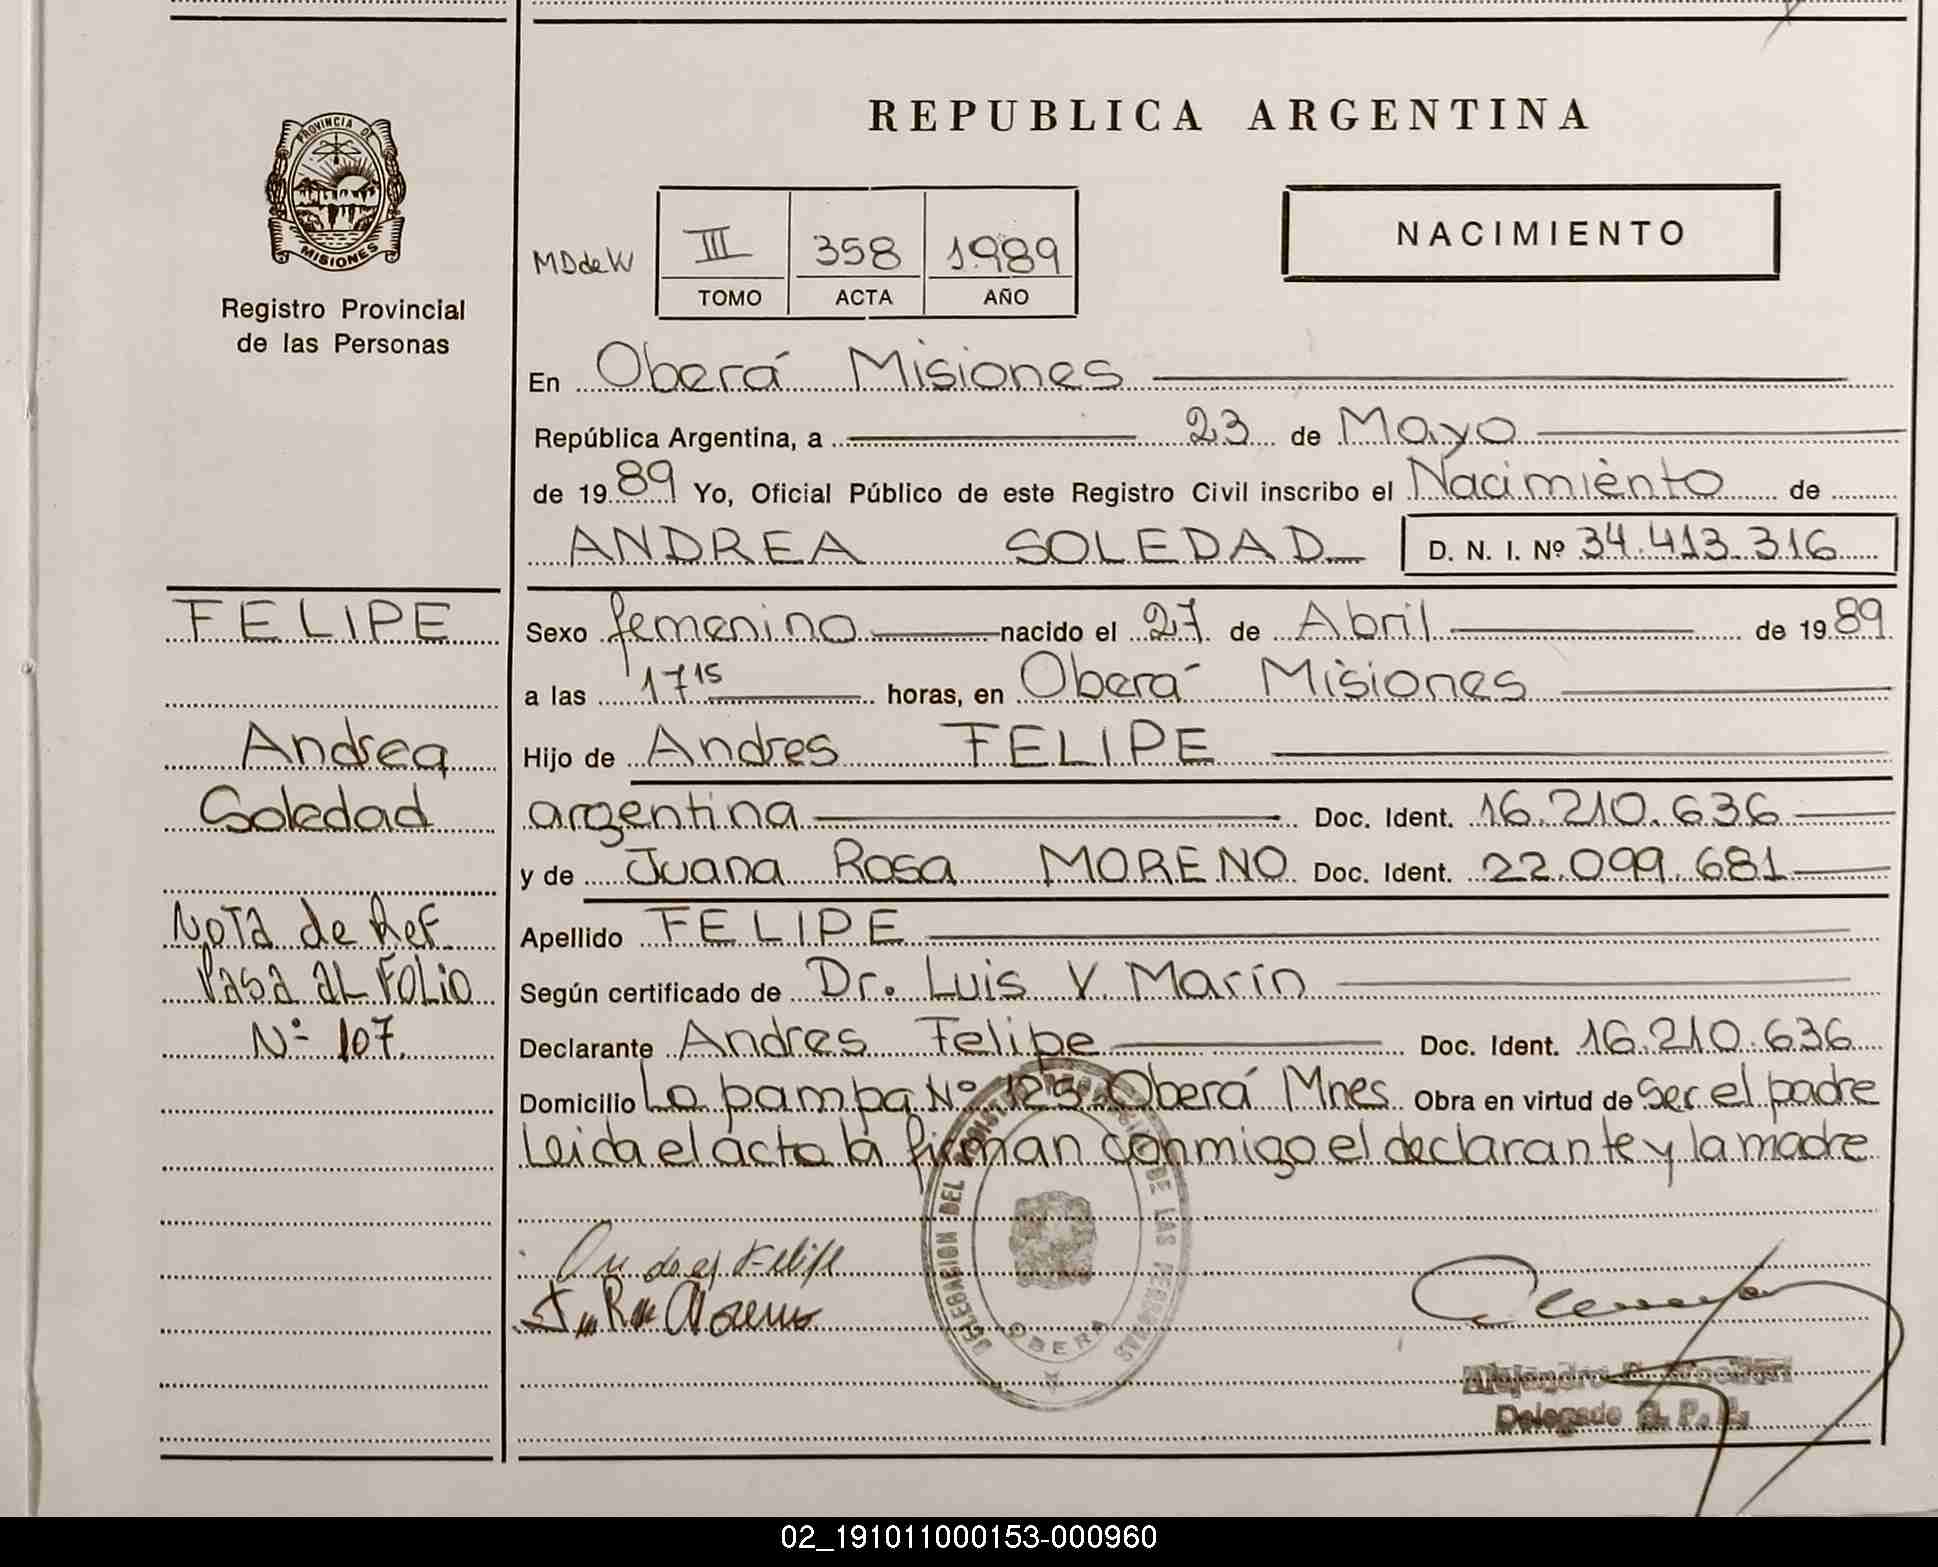 REPUBLICA ARGENTINA
PROVINCIA DE MISIONES
Registro Provincial
de las Personas
MDdeW
III 358 1989
TOMO ACTA AÑO
NACIMIENTO
En Oberá Misiones
República Argentina, a 23 de Mayo
de 1989 Yo, Oficial Público de este Registro Civil inscribo el Nacimiento de
ANDREA SOLEDAD D. N. I. Nº 34.413.316
FELIPE
Andrea
Soledad
Nota de Ref.
Pasa al Folio
Nº 107.
Sexo femenino nacido el 27 de Abril de 1989
a las 17 15 horas, en Oberá Misiones
Hijo de Andres FELIPE
argentina Doc. Ident. 16.210.636
y de Juana Rosa MORENO Doc. Ident. 22.099.681
Apellido FELIPE
Según certificado de Dr. Luis V. Marín
Declarante Andres Felipe Doc. Ident. 16.210.636
Domicilio La pampa Nº 125 Oberá Mnes Obra en virtud de ser el padre
Leida el acta la firman conmigo el declarante y la madre
Andres Felipe
J R Moreno
DELEGACION DEL REGISTRO PROVINCIAL DE LAS PERSONAS
OBERA
Alejandro
Delegado R. P. P.
02_191011000153-000960